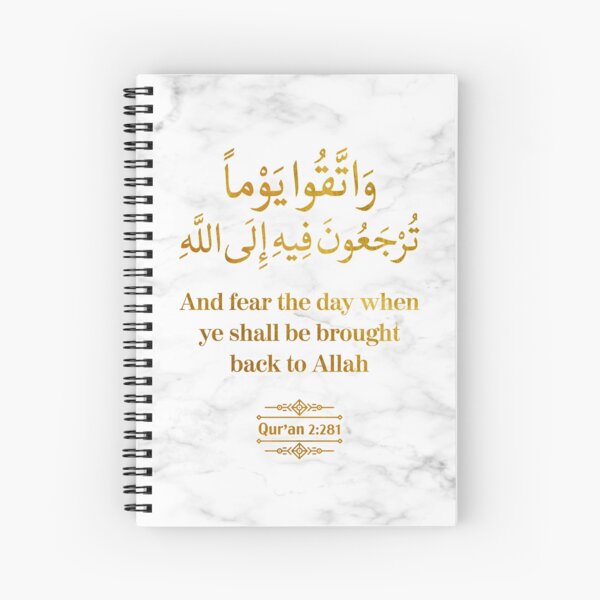 وَاتَّقُوا يَوْماً
تُرْجَعُونَ فِيهِ إِلَى اللَّهِ
And fear the day when
ye shall be brought
back to Allah
Qur'an 2:281